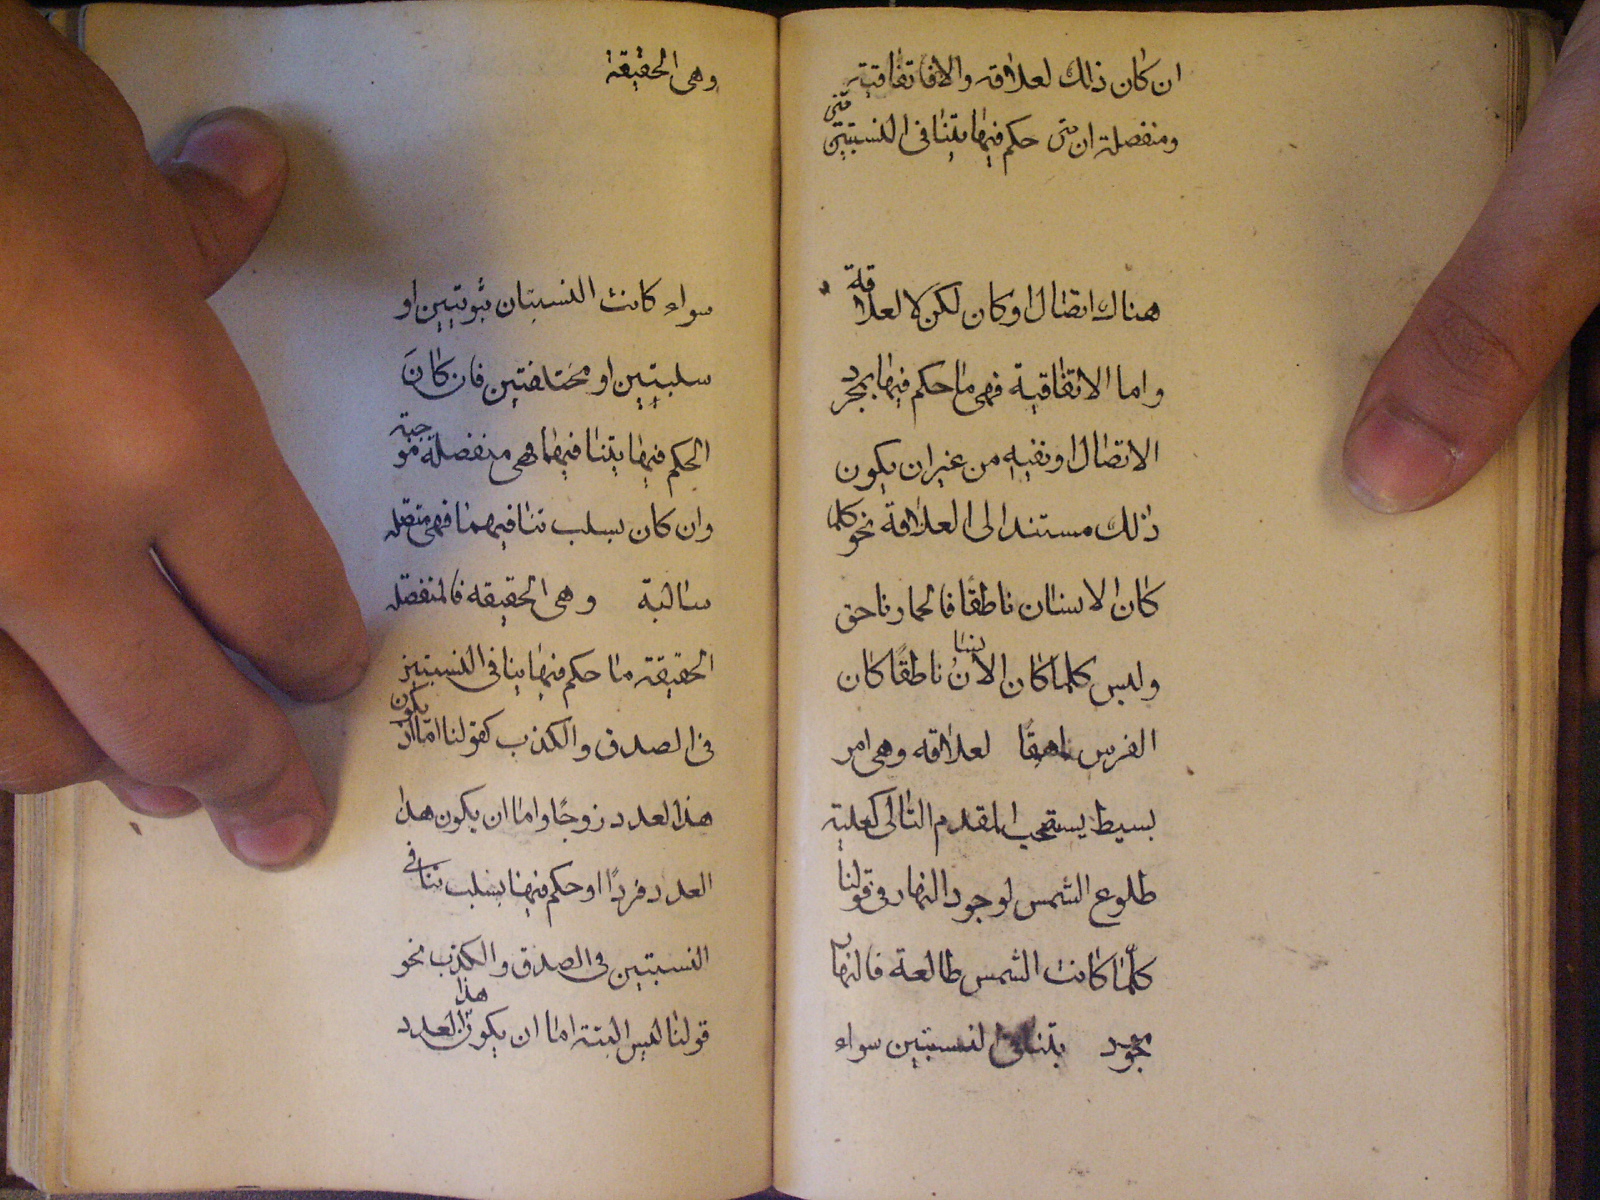 ان كان ذلك لعلاقه والافاتفاقية
ومنفصلة ان حكم فيها بتنافى النسبتين
هناك اتصال او كان لكن لا لعلاقة
واما الاتفاقية فهى ما حكم فيها بمجرد
الاتصال او نفيه من غير ان يكون
ذلك مستندا الى العلاقة نحو كلما
كان الانسان ناطقًا فالحمار ناهق
وليس كلما كان الانسان ناطقًا كان
الفرس ناهقًا لعلاقه وهى امر
بسيط يستحب المقدم التالى كعلية
طلوع الشمس لوجود النهار فى قولنا
كلّما كانت الشمس طالعة فالنهار
موجود بتنافى النسبتين سواء
وهى الحقيقة
سواء كانت النسبتان ثبوتيين او
سلبيتين او مختلفتين فان كانَ
الحكم فيها بتنافيهما فهى منفصلة موجبة
وان كان بسلب تنافيهما فهى متصله
سالبة وهى الحقيقه فالمنفصله
الحقيقة ما حكم فيها بتنافى النسبتين
فى الصدق والكذب كقولنا امّا ان يكون
هذا لعدد زوجًا واما ان يكون هذا
العدد فردًا او حكم فيها بسلب تنافى
النسبتين فى الصدق والكذب نحو
قولنا ليس البتة اما ان يكون هذا العدد